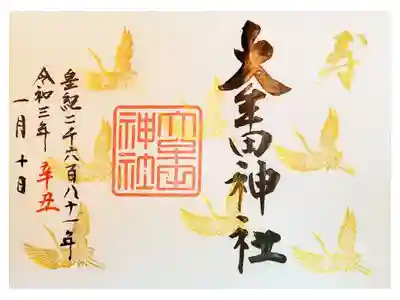 寿
神社
神社
皇紀二千六百八十一年
令和三年 辛丑
一月十日